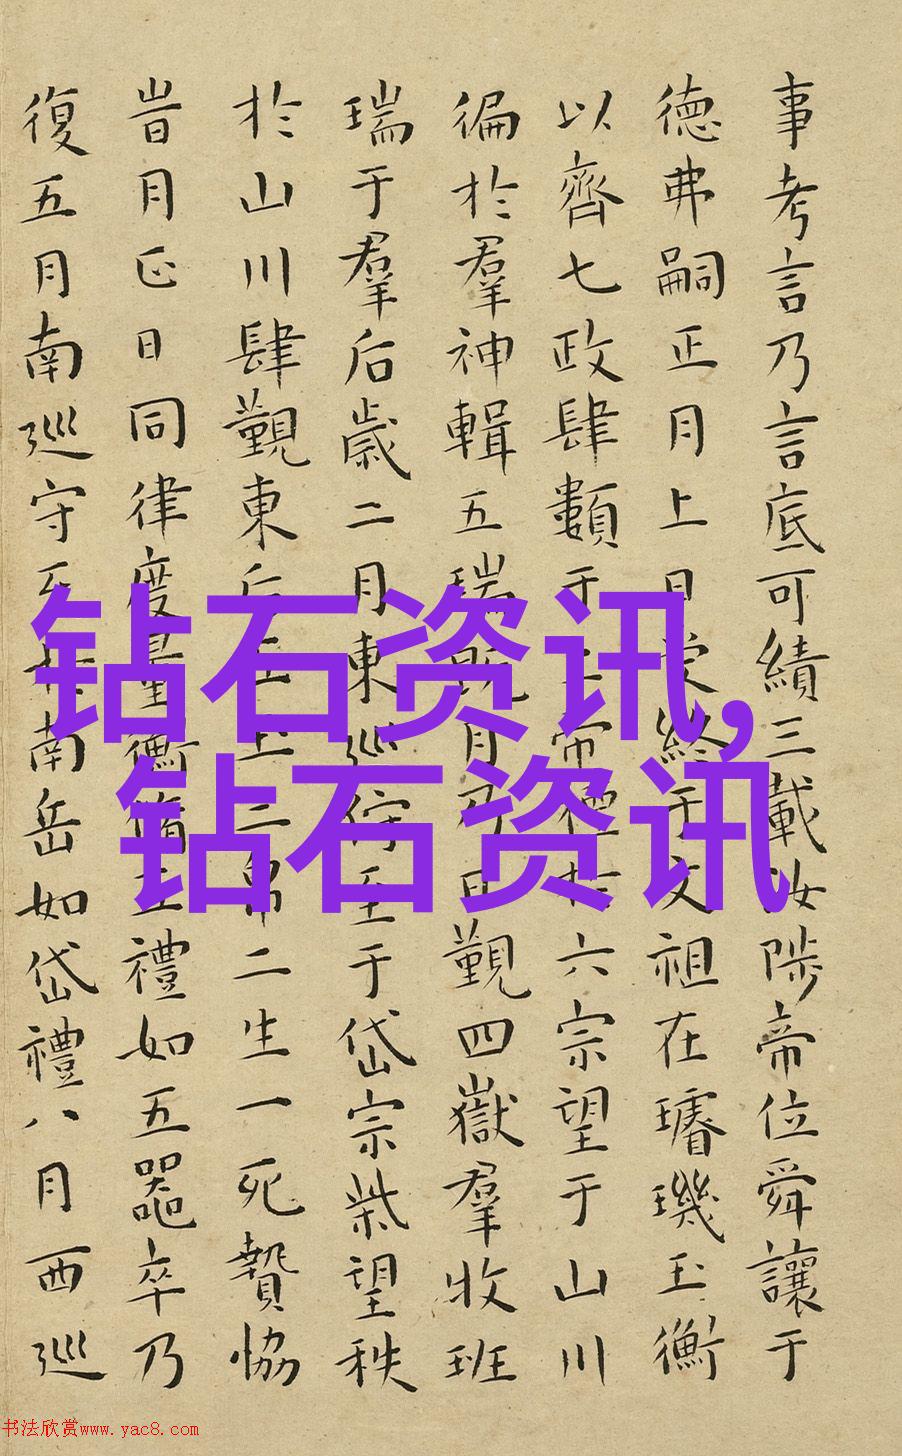 事考言乃言底可績三載汝陟帝位舜讓于
德弗嗣正月上日受終于文祖在璿璣玉衡
以齊七政肆類于上帝禋於六宗望于山川
徧於羣神輯五瑞既月乃日覲四嶽羣牧班
瑞于羣后歲二月東巡守至于岱宗柴望秩
於山川肆覲東后五玉三帛二生一死贄協
旹月正日同律度量衡脩五禮如五器卒乃
復五月南巡守至于南岳如岱禮八月西巡
钻石资讯,
钻石资讯
书法欣赏www.yac8.com